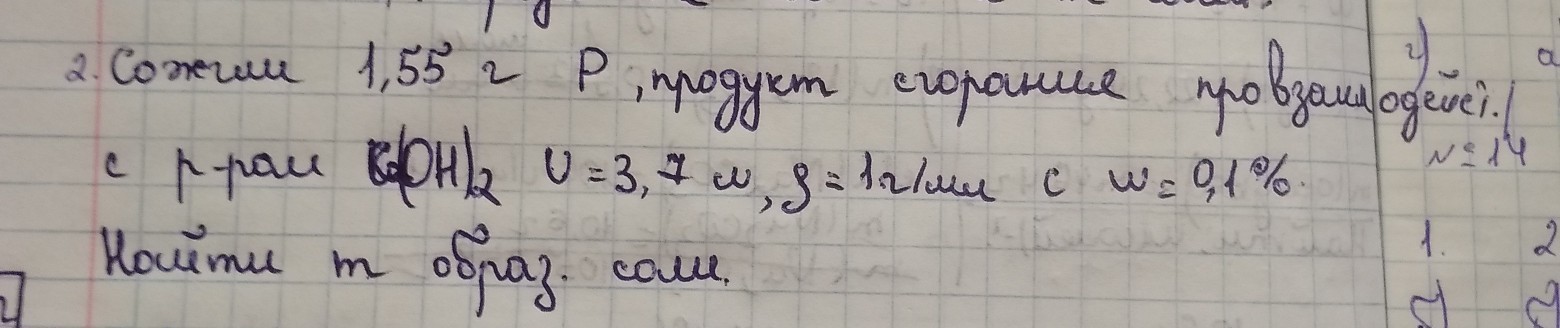 2. Сожгли 1,55 г P, продукт сгорания провзаимодейст.
с р-ром Ca(OH)2 V = 3,7 л, ρ = 1 г/мл с w = 0,1%.
№ 14
Найти m образ. соли.
1. 2